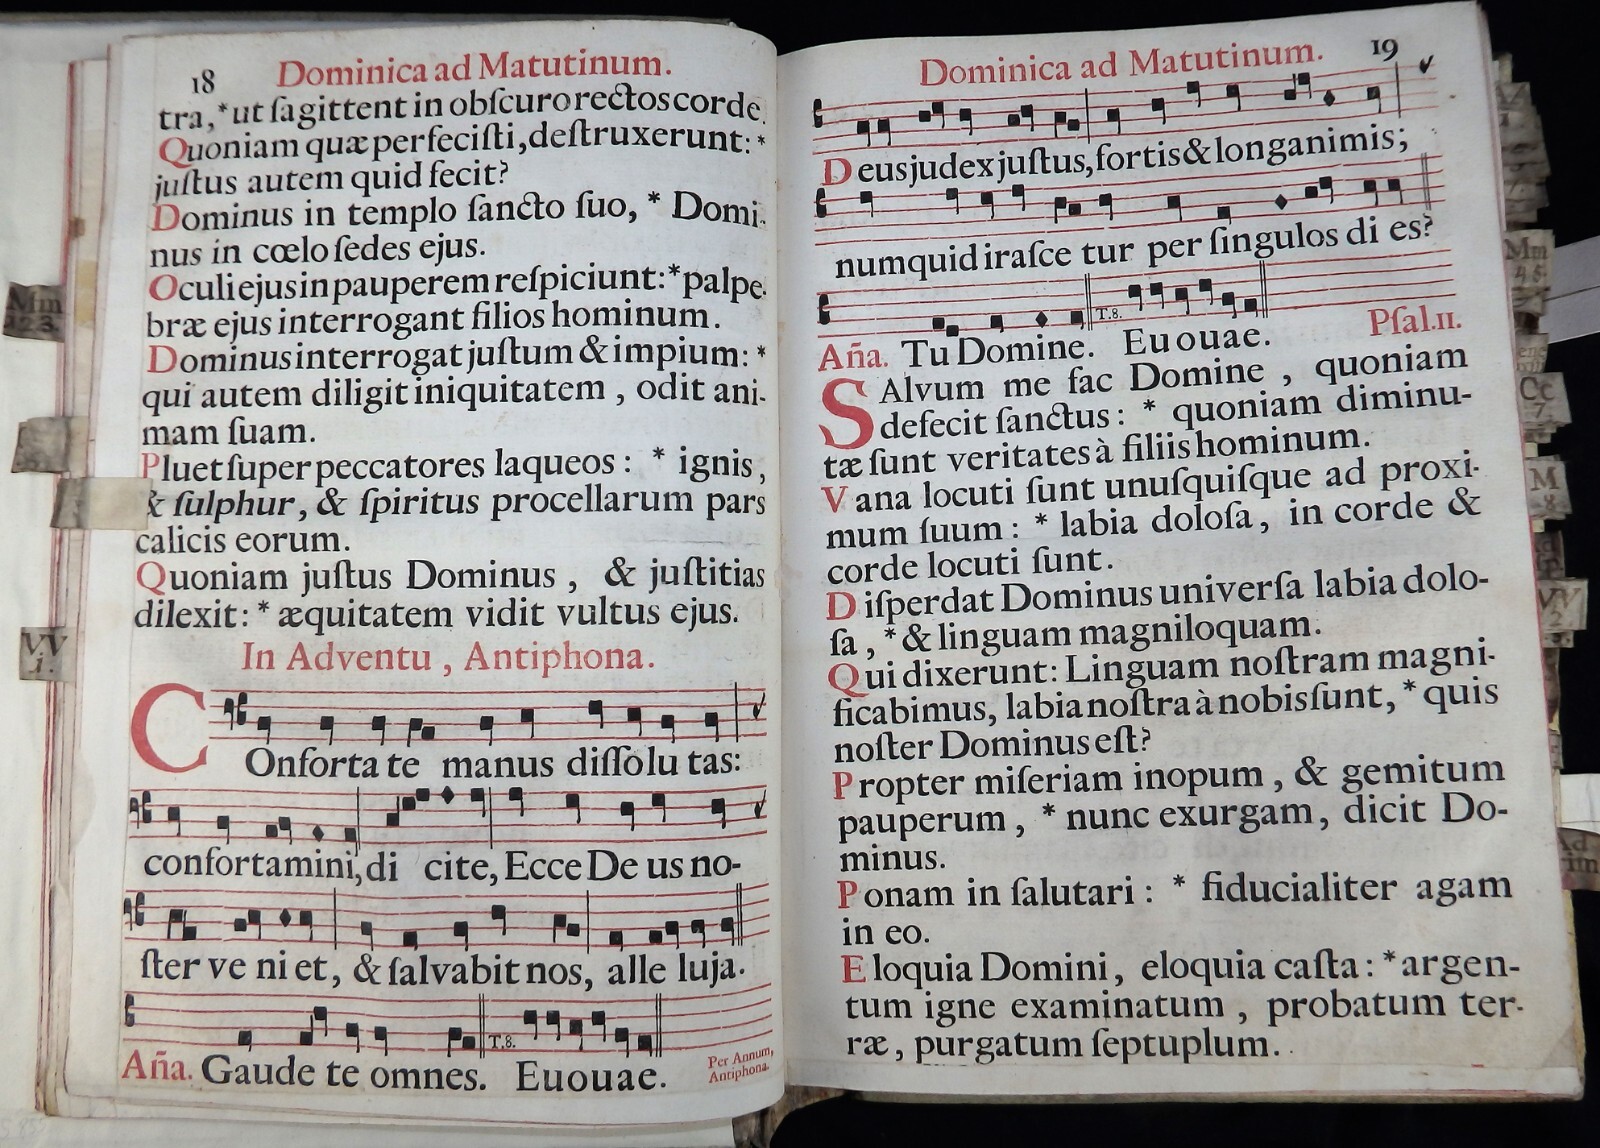 18 Dominica ad Matutinum.
tra,*ut ſagittent in obſcuro rectos corde.
Quoniam quæ perfeciſti, deſtruxerunt: *
juſtus autem quid fecit?
Dominus in templo ſancto ſuo, * Domi-
nus in cœlo ſedes ejus.
Oculi ejus in pauperem reſpiciunt:*palpe-
bræ ejus interrogant filios hominum.
Dominus interrogat juſtum & impium: *
qui autem diligit iniquitatem , odit ani-
mam ſuam.
Pluet ſuper peccatores laqueos : * ignis,
& ſulphur, & ſpiritus procellarum pars
calicis eorum.
Quoniam juſtus Dominus , & juſtitias
dilexit: * æquitatem vidit vultus ejus.
In Adventu , Antiphona.
COnforta te manus diſſolu tas:
confortamini, di cite, Ecce De us no-
ſter ve ni et, & ſalvabit nos, alle luja.
T.8.
Aña. Gaude te omnes. Euouae. Per Annum,
Antiphona.
Dominica ad Matutinum. 19
Deus judex juſtus, fortis & longanimis;
numquid iraſce tur per ſingulos di es?
T.8.
Aña. Tu Domine. Euouae. Pſal.11.
SAlvum me fac Domine , quoniam
defecit ſanctus : * quoniam diminu-
tæ ſunt veritates à filiis hominum.
Vana locuti ſunt unuſquiſque ad proxi-
mum ſuum : * labia doloſa, in corde &
corde locuti ſunt.
Diſperdat Dominus univerſa labia dolo-
ſa , * & linguam magniloquam.
Qui dixerunt: Linguam noſtram magni-
ficabimus, labia noſtra à nobis ſunt, * quis
noſter Dominus eſt?
Propter miſeriam inopum , & gemitum
pauperum , * nunc exurgam, dicit Do-
minus.
Ponam in ſalutari : * fiducialiter agam
in eo.
Eloquia Domini, eloquia caſta : * argen-
tum igne examinatum , probatum ter-
ræ, purgatum ſeptuplum.
Mm
1 2 3
VV
i.
Mm
4 5
Cc
7
M
8
VV
2